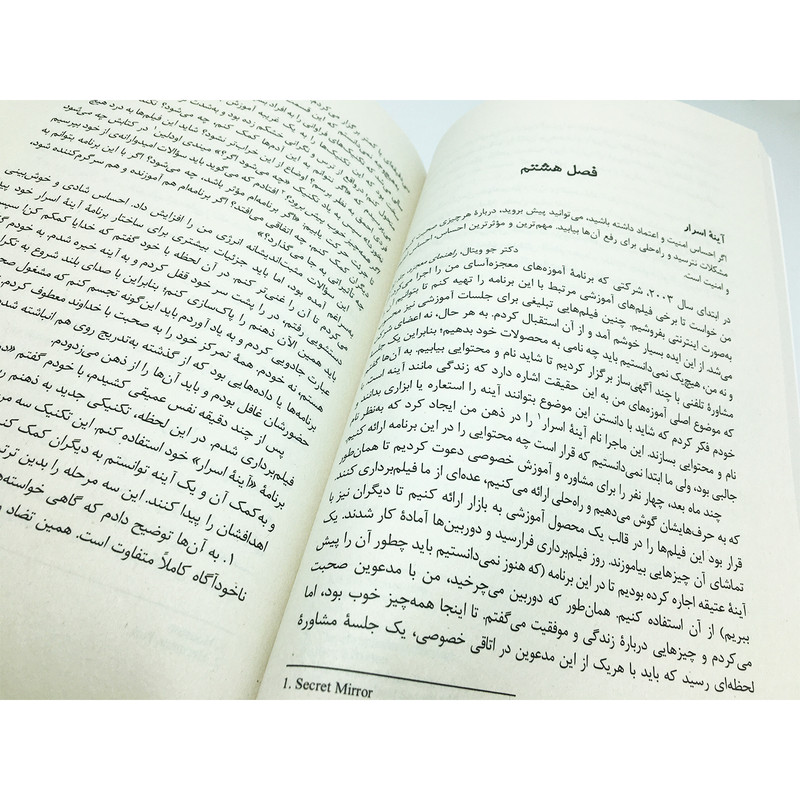 فصل هشتم
آینهٔ اسرار
اگر احساس امنیت و اعتماد داشته باشید، می‌توانید پیش بروید، دربارهٔ هرچیزی
مشکلات نترسید و راه‌حلی برای رفع آن‌ها بیابید. مهم‌ترین و مؤثرترین احساس
و امنیت است.
دکتر جو ویتال، راهنمای
در ابتدای سال ۲۰۰۳، شرکتی که برنامهٔ آموزه‌های معجزه‌آسای من را اجرا
من خواست تا برخی فیلم‌های آموزشی مرتبط با این برنامه را تهیه کنم تا
به‌صورت اینترنتی بفروشیم. چنین فیلم‌هایی تبلیغی برای جلسات آموزشی نیز
می‌شد. از این ایده بسیار خوشم آمد و از آن استقبال کردم. به هر حال، نه اعضای
و نه من، هیچ‌یک نمی‌دانستیم باید چه نامی به محصولات خود بدهیم؛ بنابراین یک
مشاورهٔ تلفنی با چند آگهی‌ساز برگزار کردیم تا شاید نام و محتوایی بیابیم. به آن‌ها
که موضوع اصلی آموزه‌های من به این حقیقت اشاره دارد که زندگی مانند آینه است
خودم فکر کردم که شاید با دانستن این موضوع بتوانند آینه را استعاره یا ابزاری بدانند
نام و محتوایی بسازند. این ماجرا نام آینهٔ اسرار۱ را در ذهن من ایجاد کرد که به‌نظر نام
جالبی بود، ولی ما ابتدا نمی‌دانستیم که قرار است چه محتوایی را در این برنامه ارائه کنیم.
چند ماه بعد، چهار نفر را برای مشاوره و آموزش خصوصی دعوت کردیم تا همان‌طور
که به حرف‌هایشان گوش می‌دهیم و راه‌حلی ارائه می‌کنیم، عده‌ای از ما فیلم‌برداری کنند.
قرار بود این فیلم‌ها را در قالب یک محصول آموزشی به بازار ارائه کنیم تا دیگران نیز با
تماشای آن چیزهایی بیاموزند. روز فیلم‌برداری فرارسید و دوربین‌ها آمادهٔ کار شدند. یک
آینهٔ عتیقه اجاره کرده بودیم تا در این برنامه (که هنوز نمی‌دانستیم باید چطور آن را پیش
ببریم) از آن استفاده کنیم. همان‌طور که دوربین می‌چرخید، من با مدعوین صحبت
می‌کردم و چیزهایی دربارهٔ زندگی و موفقیت می‌گفتم. تا اینجا همه‌چیز خوب بود، اما
لحظه‌ای رسید که باید با هریک از این مدعوین در اتاقی خصوصی، یک جلسهٔ مشاورهٔ
1. Secret Mirror
دیگران کمک کنم، چه اتفاقی می‌افتد؟ اگر برنامه‌ام هم آموزنده و هم سرگرم‌کننده شود،
چه تأثیراتی به جا می‌گذارد؟»
این سؤالات مثبت‌اندیشانه انرژی من را افزایش داد. احساس شادی و خوش‌بینی
به سراغم آمده بود، اما باید جزئیات بیشتری برای ساختار برنامهٔ آینهٔ اسرار خود پیدا
می‌کردم تا آن را غنی‌تر کنم. در آن لحظه با خود گفتم که خدایا کمکم کن! سپس
دستشویی رفتم، در را پشت سر خود قفل کردم و به آینه خیره شدم. به خودم گفتم
باید همین الآن ذهنم را پاک‌سازی کنم؛ بنابراین با صدای بلند شروع به تکرار
عبارت جادویی کردم و به یاد آوردم باید این‌گونه تجسم کنم که مشغول صحبت
هستم، نه خودم. همهٔ تمرکز خود را به صحبت با خداوند معطوف کردم.
برنامه‌ها یا داده‌هایی بود که از گذشته به‌تدریج روی هم انباشته شده
حضورشان غافل بودم و باید آن‌ها را از ذهن می‌زدودم.
پس از چند دقیقه نفس عمیقی کشیدم، با خودم گفتم
فیلم‌برداری شدم. در این لحظه، تکنیکی جدید به ذهنم
برنامهٔ «آینهٔ اسرار» خود استفاده کنم. این تکنیک سه
و به‌کمک آن و یک آینه توانستم به دیگران کمک کنم
اهدافشان را پیدا کنند. این سه مرحله را بدین
۱. به آن‌ها توضیح دادم که گاهی خواسته‌های
ناخودآگاه کاملاً متفاوت است. همین تضاد